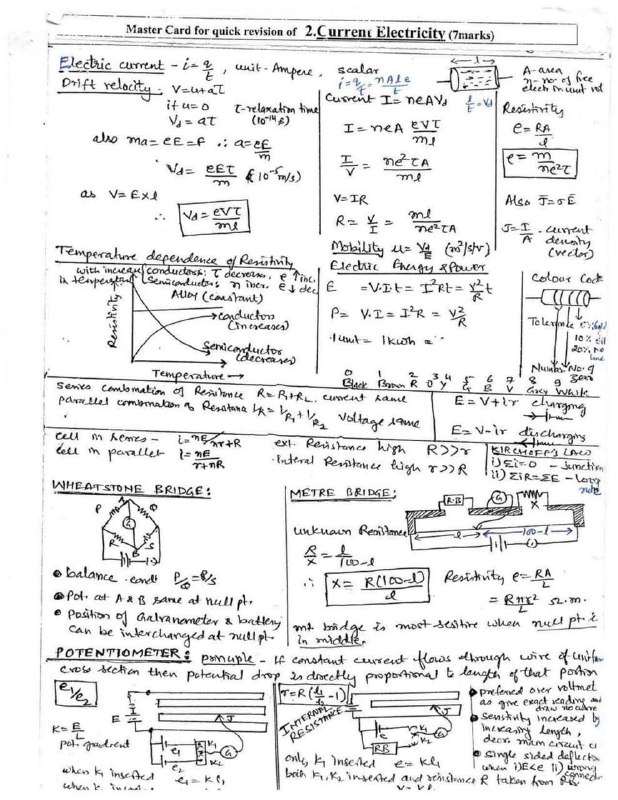 Master Card for quick revision of 2.Current Electricity (7marks)
Electric current - i = q/t, unit-Ampere, scalar
i = q/t = nAle/t
A-area
n-no of free
elecn in unit vol
Drift velocity - V = u+aτ
if u=0 τ-relaxation time
Vd = aτ (10^-14 s)
also ma = eE = F ∴ a = eE/m
Vd = eEτ/m (10^-5 m/s)
as V = E×l
∴ Vd = eVτ/ml
Current I = neAVd l/t = Vd
I = neA eVτ/ml
I/V = ne²τA/ml
V=IR
R = V/I = ml/ne²τA
Mobility μ = Vd/E
Resistivity
ρ = RA/l
ρ = m/ne²τ
Also J̄ = σĒ
J = I/A - current
density
(vector)
Temperature dependence of Resistivity
with increase conductors: τ decreases, ρ↑ inc.
in temperature Semiconductors n incr. ρ↓ dec
Alloy (constant)
conductor
(increases)
Semiconductor
(decreases)
Resistivity
Temperature →
Electric Energy & Power
E = V.I.t = I²Rt = V²/R t
P = V.I = I²R = V²/R
1 unit = 1kwh =
Colour Code
Tolerance 5%
10% sil
20% No
Number No. of
Zero
0 1 2 3 4 5 6 7 8 9
Black Brown R O Y G B V Grey White
series combination of Resistance R = R1+R2. current same
parallel combination of Resistance 1/R = 1/R1 + 1/R2 Voltage same
E = V+ir charging
E = V-ir discharging
cell in series - i = nE/nr+R ext. Resistance high R>>r
cell in parallel i = nE/r+nR internal Resistance high r>>R
KIRCHOFF'S LAW
i) Σi=0 - Junction
ii) ΣiR=ΣE - Loop
rule
WHEATSTONE BRIDGE:
P Q R S A B G
balance condt P/Q = R/S
Pot. at A & B same at null pt.
Position of Galvanometer & battery
can be interchanged at null pt.
METRE BRIDGE:
R.B G X
l 100-l
Unknown Resistance
R/X = l/100-l
∴ X = R(100-l)/l
Resistivity ρ = RA/L
= Rπr²/L Ω.m.
mt bridge is most sesitive when null pt. i
in middle.
POTENTIOMETER: principle - If constant current flows through wire of Unifor
cross section then potential drop is directly proportional to length of that portion
e1/e2
E J
K = E/L
pot. gradient
e1 K1 G
e2
when K1 inserted
e1 = Kl1
r = R(l1/l2 -1)
INTERNAL
RESISTANCE
E J
e K1 G
RB K2
only K1 inserted e = Kl1
both K1, K2 inserted and resistance R taken from R.B
preferred over voltmet
as give exact reading and
draw no curre
Sensitivity increased by
increasing length,
decr. main circuit c
single sided deflectn
when i) E<e ii) wrong
connec